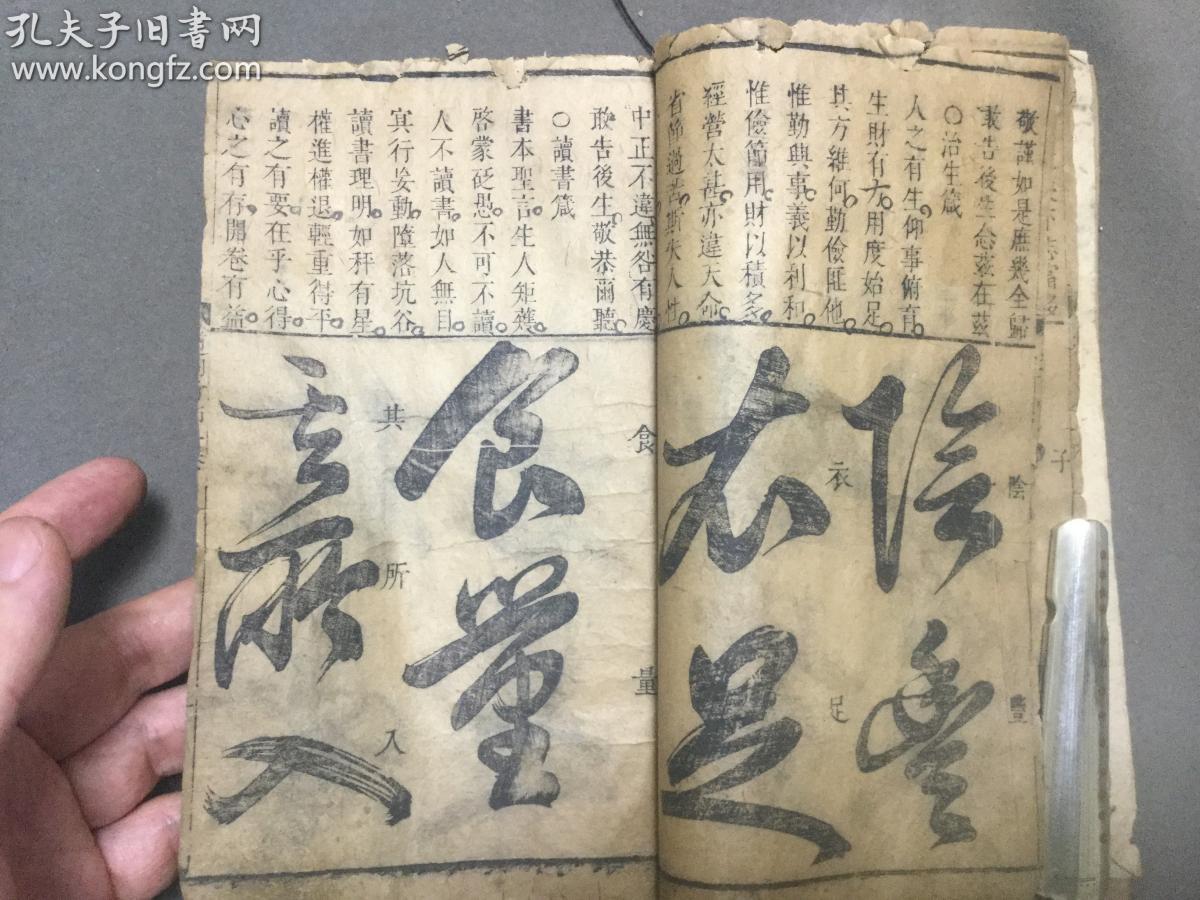 孔夫子旧书网
www.kongfz.com
敬謹如是庶幾全歸
敢告後生念茲在茲
○治生箴
人之有生仰事俯育
生財有方用度始足
其方維何勤儉匪他
惟勤興事義以利和
惟儉節用財以積多
經營太甚亦違天命
過苦斯失人性
中正不違無咎有慶
敢告後生敬恭爾聽
○讀書箴
書本聖言生人矩
啓蒙砭愚不可不讀
人不讀書如人無目
冥行妄動墮落坑谷
讀書理明如秤有星
權進權退輕重得平
讀之有要在乎心得
心之有存開卷有益
子
陰豐
陰豐
衣足
衣足
食量
食量
共所入
所入